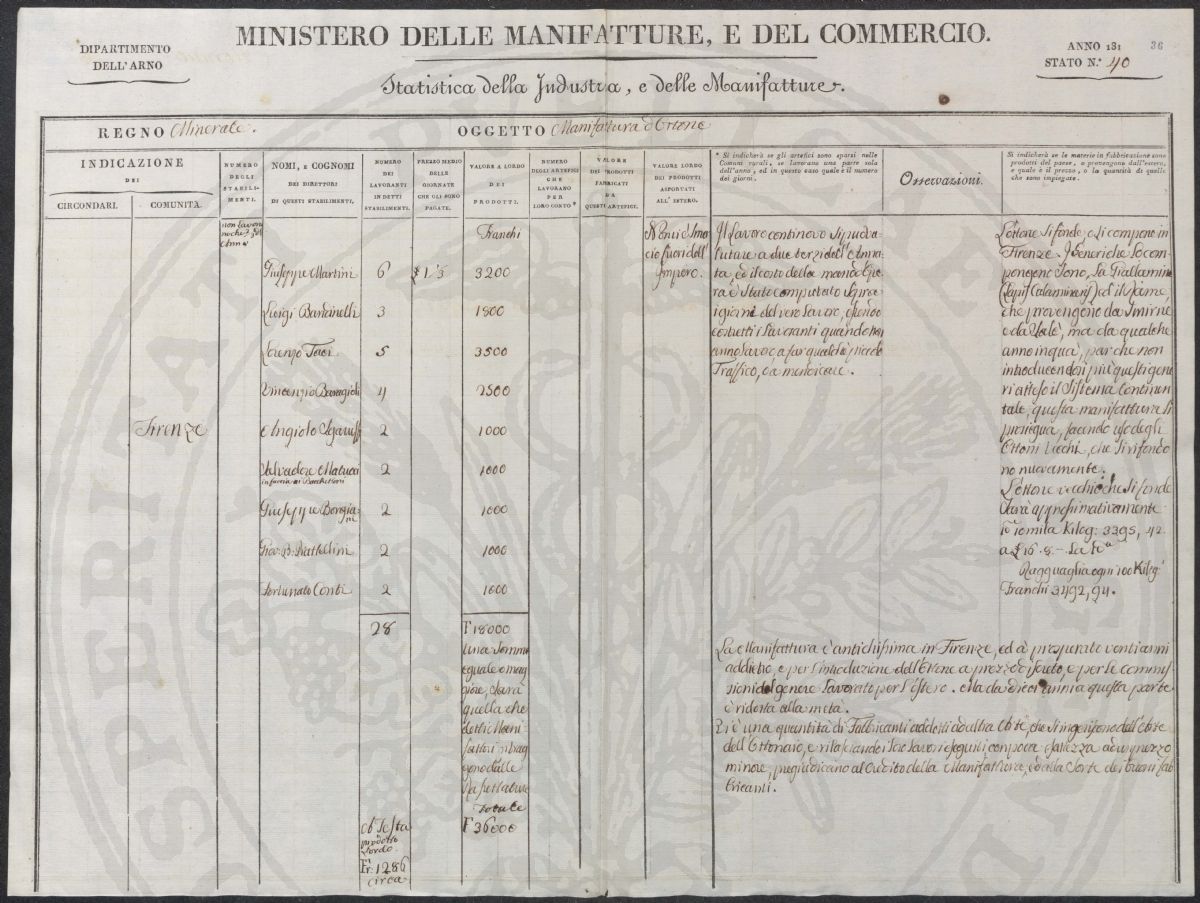 DIPARTIMENTO
DELL'ARNO
MINISTERO DELLE MANIFATTURE, E DEL COMMERCIO.
ANNO 181
36
STATO N.º 40
Statistica della Industria, e delle Manifatture.
REGNO Minerale.
OGGETTO Manifattura d'Ottone
INDICAZIONE
DEI
CIRCONDARI.
COMUNITÀ.
NUMERO
DEGLI
STABILI-
MENTI.
NOMI, E COGNOMI
DEI DIRETTORI
DI QUESTI STABILIMENTI.
NUMERO
DEI
LAVORANTI
IN DETTI
STABILIMENTI.
PREZZO MEDIO
DELLE
GIORNATE
CHE GLI SONO
PAGATE.
VALORE A LORDO
DEI
PRODOTTI.
NUMERO
DEGLI ARTEFICI
CHE
LAVORANO
PER
LORO CONTO*
VALORE
DEI PRODOTTI
FABRICATI
DA
QUESTI ARTEFICI.
VALORE LORDO
DEI PRODOTTI
ASPORTATI
ALL'ISTERO.
* Si indicherà se gli artefici sono sparsi nelle
Comuni rurali, se lavorano una parte sola
dell'anno, ed in questo caso quale è il numero
dei giorni.
Osservazioni.
Si indicherà se le materie in fabbricazione sono
prodotti del paese, o provengono dall'estero,
e quale è il prezzo, o la quantità di quelle
che sono impiegate.
Firenze
Giuseppe Martini
Luigi
Lorenzo
Vincenzio
e Angiolo
Salvadore Matucci
in faccia ai Bacchettoni
Giuseppe Bongia
ni
Gio: B:
Fortunato Conti
6
3
5
4
2
2
2
2
2
28
£ 1 3
Franchi
3200
1800
3500
2500
1000
1000
1000
1000
1000
F 18000
una somma
eguale e mag
giore, sarà
quella che
detti Mani
fattori
gono dalle
Totale
F 36000
prodotto
Lordo
Fr: 1286
circa
cio fuori dell'
Impero.
Il Lavoro continovo si può va
lutare a due terzi dell'Anna
ta, ed il costo della mano d'ope
ra è stato computato sopra
i giorni del vero Lavoro, essendo
costretti i Lavoranti quando non
anno Lavoro a far qualche piccolo
Traffico, o a mendicare.
L'ottone si fonde, e si compone in
Firenze. I Generi che Lo com
pongono sono, La Giallamina
(Lapis Calaminaris) ed il Rame,
che provengono da Smirne
ma da qualche
anno in quà, par che non
introducendosi più questi gene
ri atteso il Sistema Continen
tale, questa manifattura si
prosegua, facendo uso degli
Ottoni Vecchi, che si rifondo
no nuovamente.
L'ottone vecchio che si fonde
sarà approssimativamente
Kilog: 3395, 42.
Ragguaglia ogni 100 Kilog:
Franchi
La Manifattura è antichissima in Firenze, ed à prosperato venti anni
addietro, e per l'introduzione dell'Ottone a prezzo discreto, e per le commis
sioni del genere Lavorato per l'Estero. Ma da dieci anni a questa parte
è ridotta alla metà.
Vi è una quantità di Fabbricanti addetti ad altra Arte, che si ingeriscono dell'Arte
dell'Ottonaio, e rilasciando i Loro Lavori eseguiti con poca esattezza ad un prezzo
minore, pregiudicano al Credito della Manifattura, ed alla Sorte dei buoni fab
bricanti.